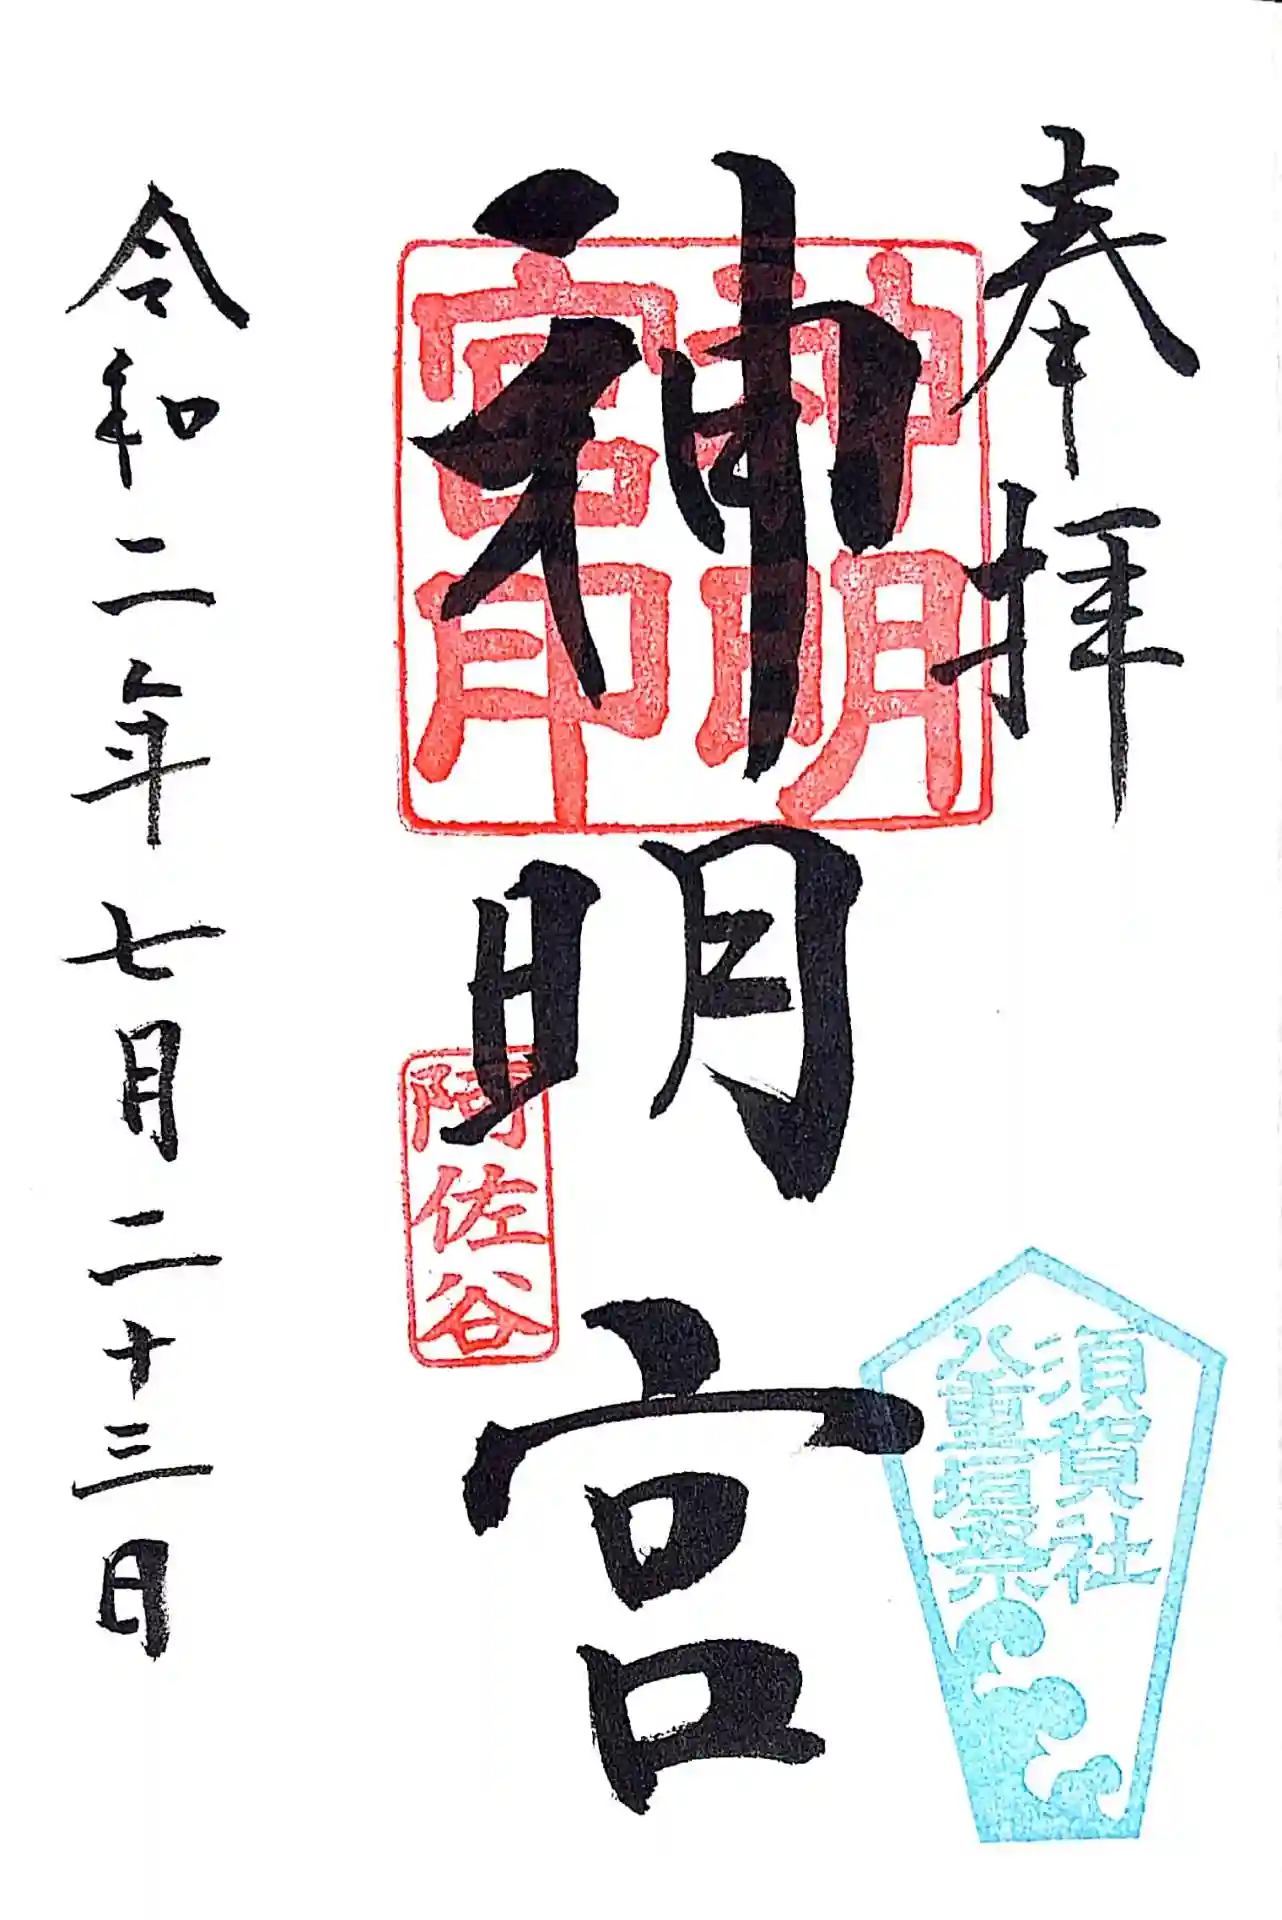 奉拝
神明宮
神明
宮印
阿佐谷
須賀社
八重垣祭
令和二年七月二十三日